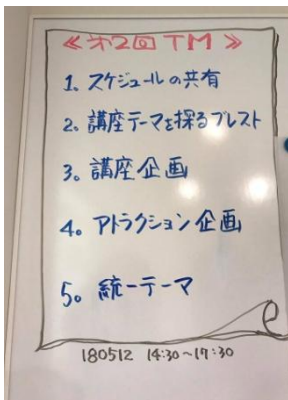 ≪才2回TM≫
1. スケジュールの共有
2. 講座テーマを探るブレスト
3. 講座企画
4. アトラクション企画
5. 統一テーマ
180512 14:30~17:30